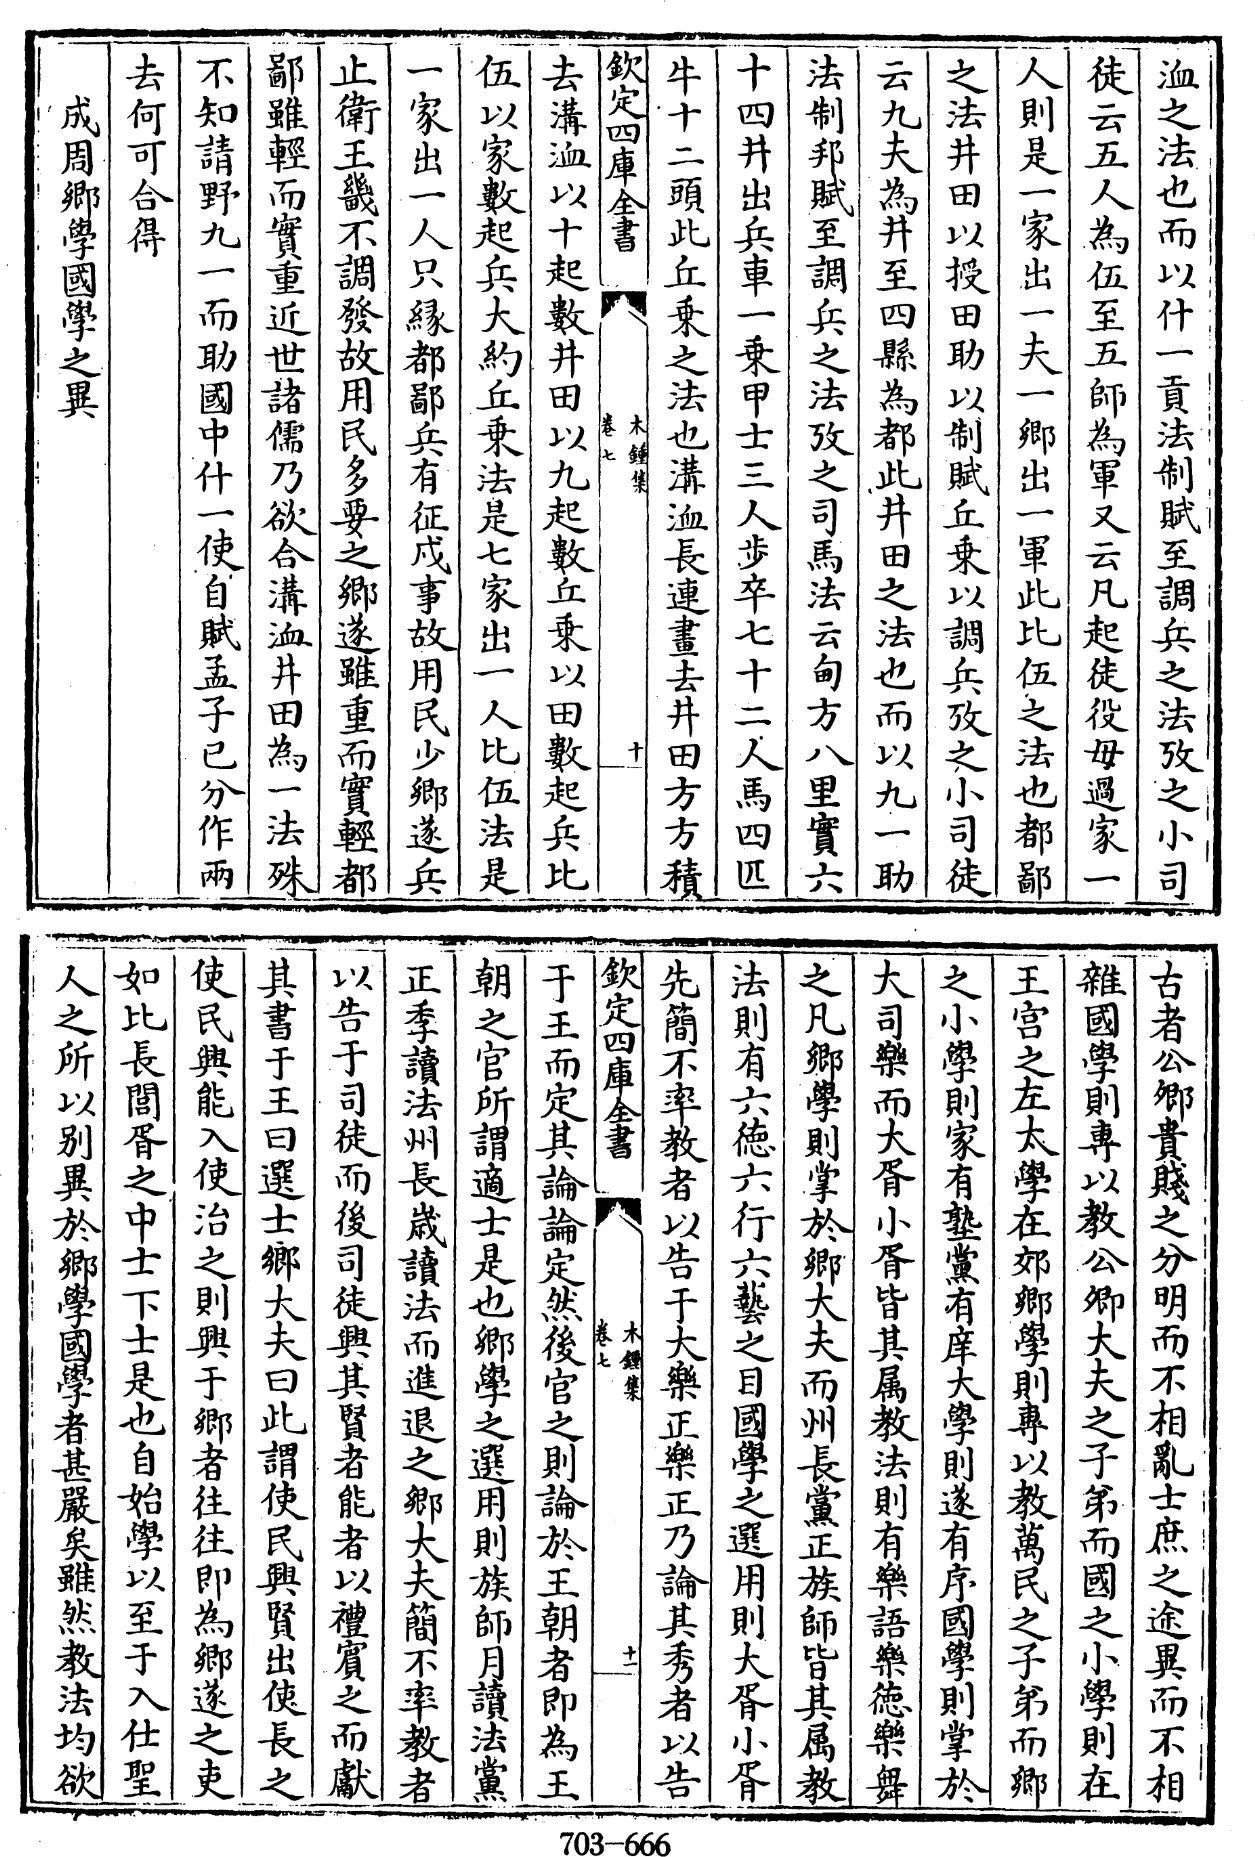 洫之法也而以什一貢法制賦至調兵之法攷之小司
徒云五人為伍至五師為軍又云凡起徒役毋過家一
人則是一家出一夫一鄉出一軍此比伍之法也都鄙
之法井田以授田助以制賦丘乗以調兵攷之小司徒
云九夫為井至四縣為都此井田之法也而以九一助
法制邦賦至調兵之法攷之司馬法云甸方八里實六
十四井出兵車一乗甲士三人歩卒七十二人馬四匹
牛十二頭此丘乗之法也溝洫長連畫去井田方方積
欽定四庫全書
木鍾集
卷七
十
去溝洫以十起數井田以九起數丘乗以田數起兵比
伍以家數起兵大約丘乗法是七家出一人比伍法是
一家出一人只縁都鄙兵有征戍事故用民少鄉遂兵
止衛王畿不調發故用民多要之鄉遂雖重而實輕都
鄙雖輕而實重近世諸儒乃欲合溝洫井田為一法殊
不知請野九一而助國中什一使自賦孟子已分作兩
去何可合得
成周鄉學國學之異
古者公卿貴賤之分明而不相亂士庶之途異而不相
雜國學則專以教公卿大夫之子弟而國之小學則在
王宮之左太學在郊鄉學則專以教萬民之子弟而鄉
之小學則家有塾黨有庠大學則遂有序國學則掌於
大司樂而大胥小胥皆其属教法則有樂語樂徳樂舞
之凡鄉學則掌於鄉大夫而州長黨正族師皆其属教
法則有六徳六行六藝之目國學之選用則大胥小胥
先簡不率教者以告于大樂正樂正乃論其秀者以告
欽定四庫全書
木鍾集
卷七
十一
于王而定其論論定然後官之則論於王朝者即為王
朝之官所謂適士是也鄉學之選用則族師月讀法黨
正季讀法州長歳讀法而進退之鄉大夫簡不率教者
以告于司徒而後司徒興其賢者能者以禮賓之而獻
其書于王曰選士鄉大夫曰此謂使民興賢出使長之
使民興能入使治之則興于鄉者往往即為鄉遂之吏
如比長閭胥之中士下士是也自始學以至于入仕聖
人之所以别異於鄉學國學者甚嚴矣雖然教法均欲
703-666